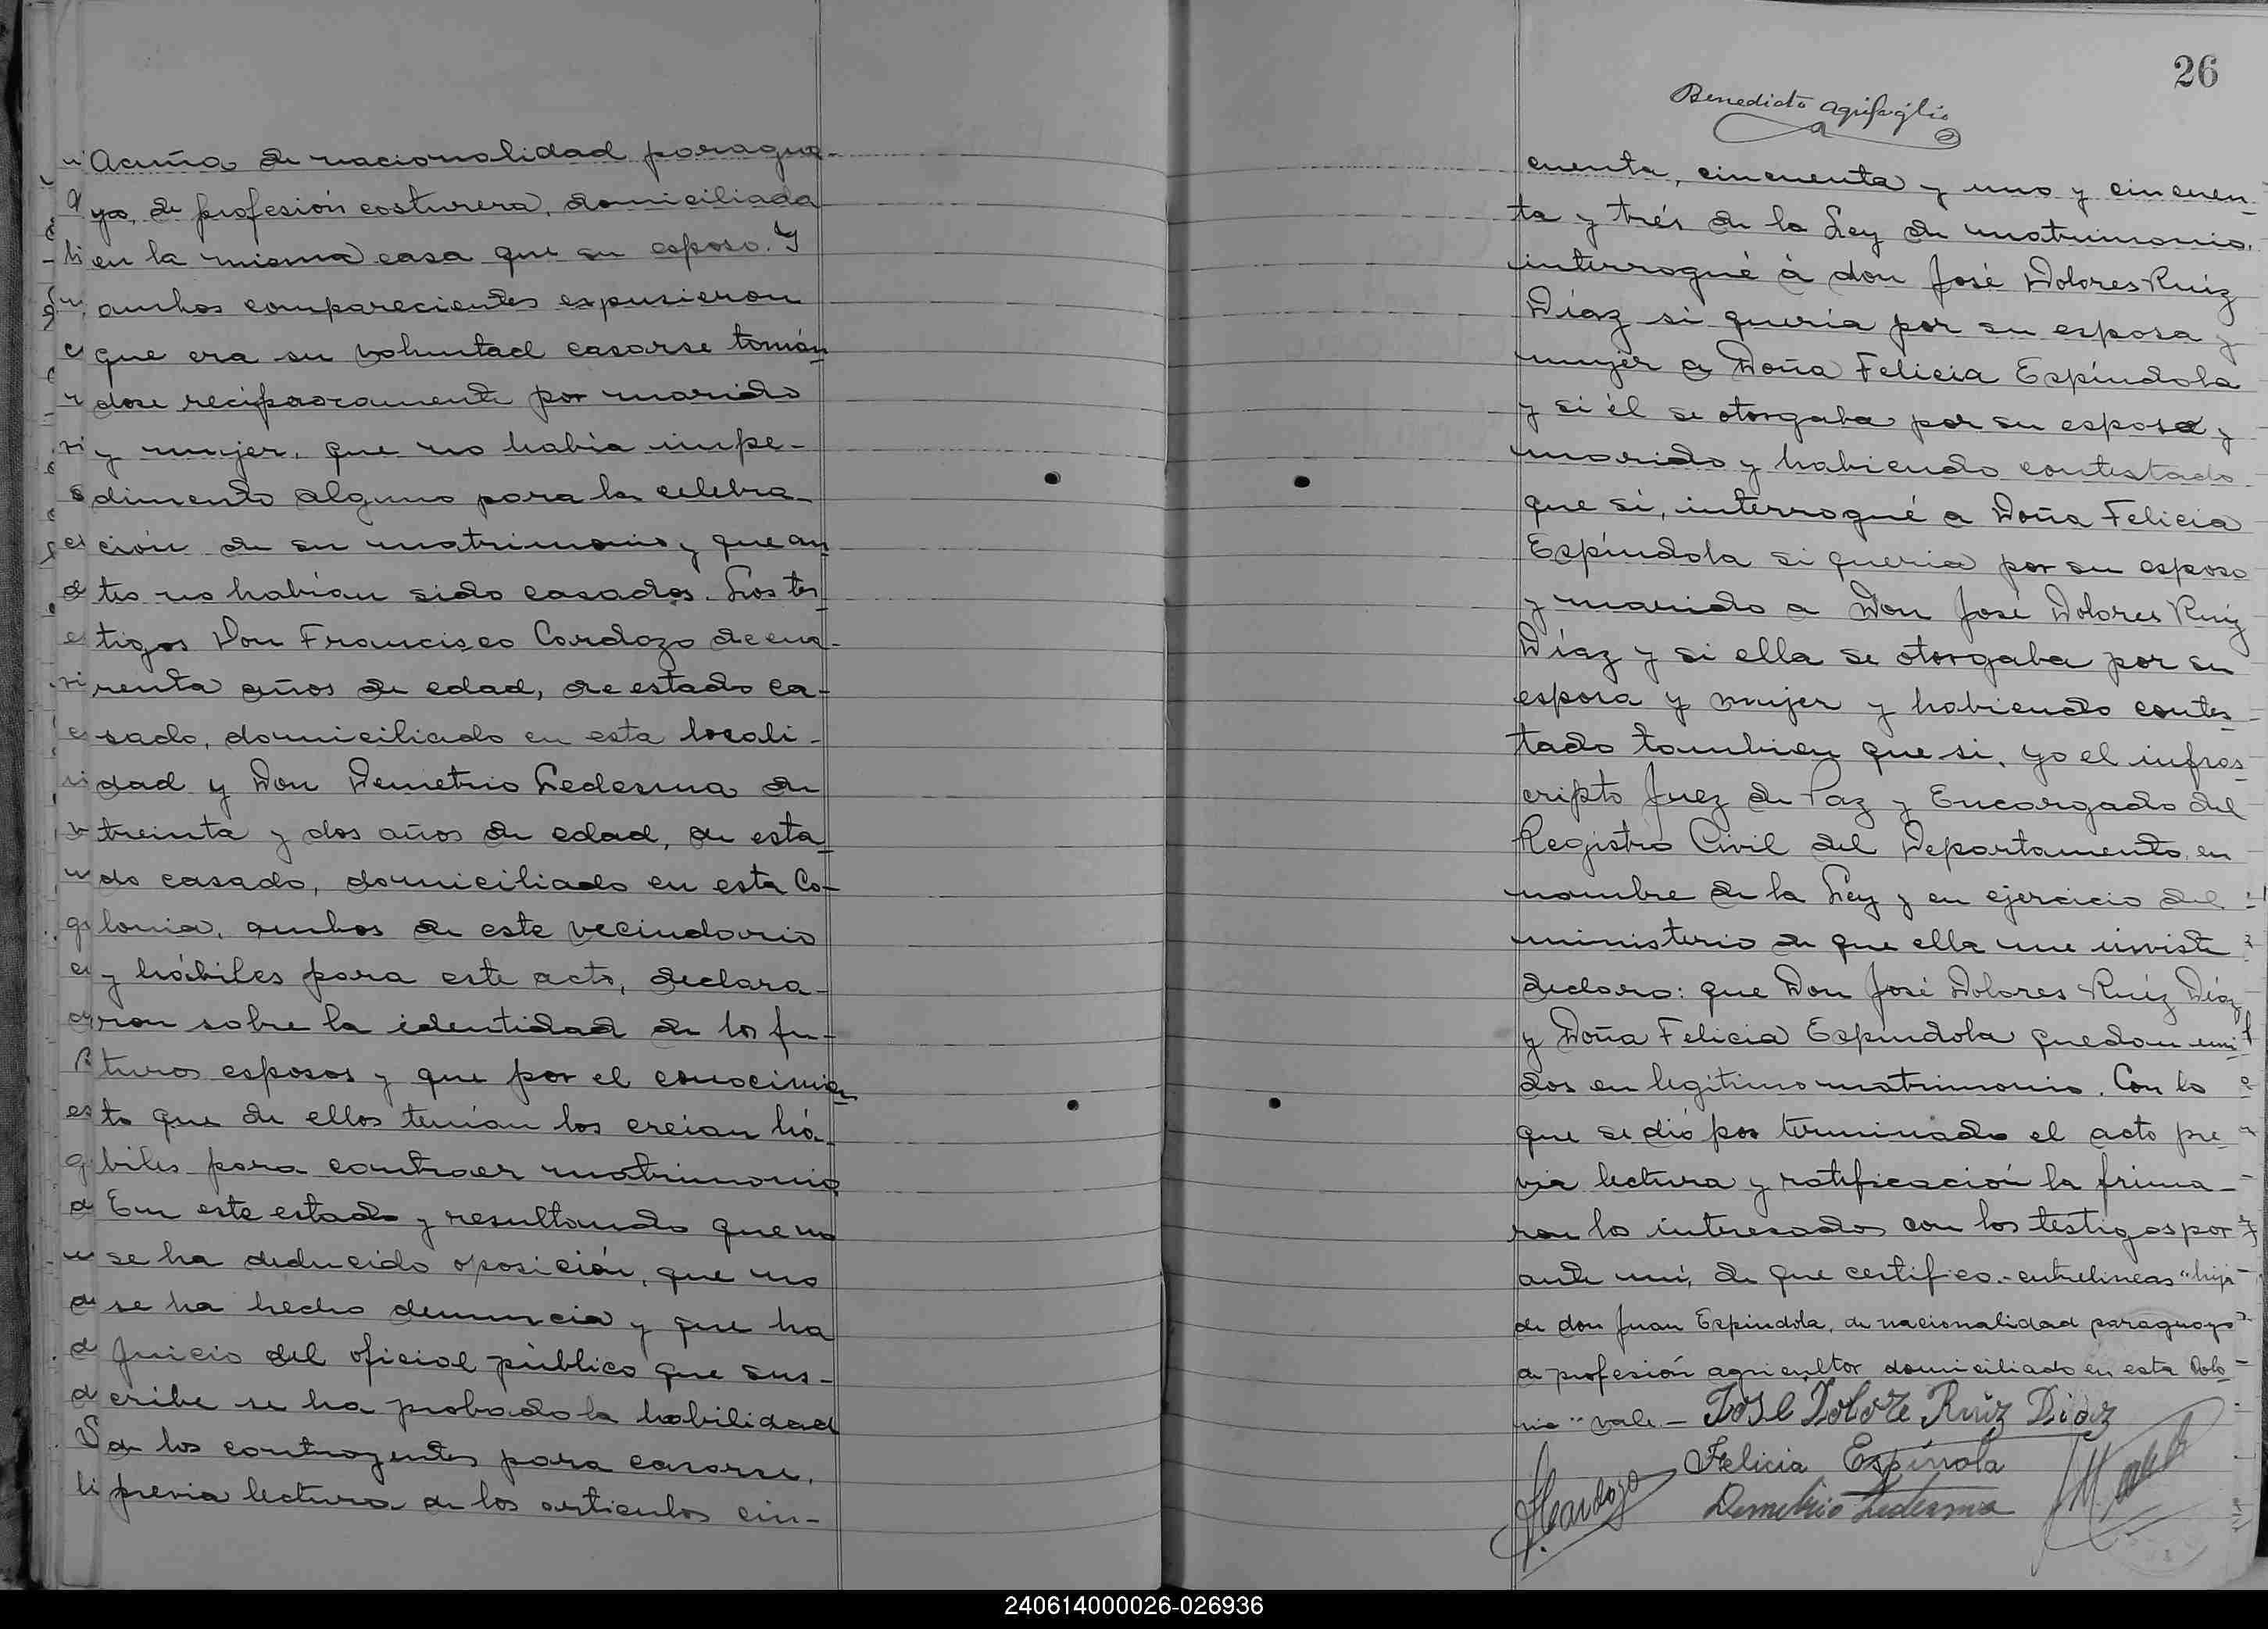 Acuña de nacionalidad paragua-
ya, de profesión costurera, domiciliada
en la misma casa que su esposo. Y
ambos comparecientes expusieron
que era su voluntad casarse tomán
dose reciprocamente por marido
y mujer, que no había impe-
dimento alguno para la celebra-
ción de su matrimonio y que an
tes no habían sido casados. Los tes
tigos Don Francisco Cardozo de cua-
renta años de edad, de estado ca-
sado, domiciliado en esta locali-
dad y Don Demetrio Ledesma de
treinta y dos años de edad, de esta
do casado, domiciliado en esta Co-
lonia, ambos de este vecindario
y hábiles para este acto, declara-
ron sobre la identidad de los fu-
turos esposos y que por el conocimien
to que de ellos tenían los creian há-
biles para contraer matrimonio
En este estado y resultando que no
se ha deducido oposición, que no
se ha hecho denuncia y que ha
juicio del oficial público que sus-
cribe se ha probado la habilidad
de los contrayentes para casarse,
previa lectura de los articulos cin-
26
Benedicto
cuenta, cincuenta y uno y cincuen-
ta y trés de la Ley de matrimonio,
interrogué à don José Dolores Ruíz
Díaz si quería por su esposa y
mujer a Doña Felicia Espíndola
y si él se otorgaba por su esposo y
marido y habiendo contestado
que si, interrogué a Doña Felicia
Espíndola si queria por su esposo
y marido a Don José Dolores Ruíz
Díaz y si ella se otorgaba por su
esposa y mujer y habiendo contes-
tado tambien que si, yo el infras-
cripto Juez de Paz y Encargado del
Registro Civil del Departamento, en
nombre de la Ley y en ejercicio del
ministerio de que ella me inviste
declaro: que Don José Dolores Ruíz Díaz
y Doña Felicia Espíndola quedan uni
dos en legítimo matrimonio. Con lo
que se dió por terminado el acto pre-
via lectura y ratificación la firma-
ron los interesados con los testigos por
ante mí, de que certifico.- entrelineas "hija
de don Juan Espíndola, de nacionalidad paraguayo
de profesión agricultor domiciliado en esta Colo-
nia" vale - José Dolore Ruiz Diaz
Felicia Espínola
Cardozo Demetrio Ledesma
240614000026-026936